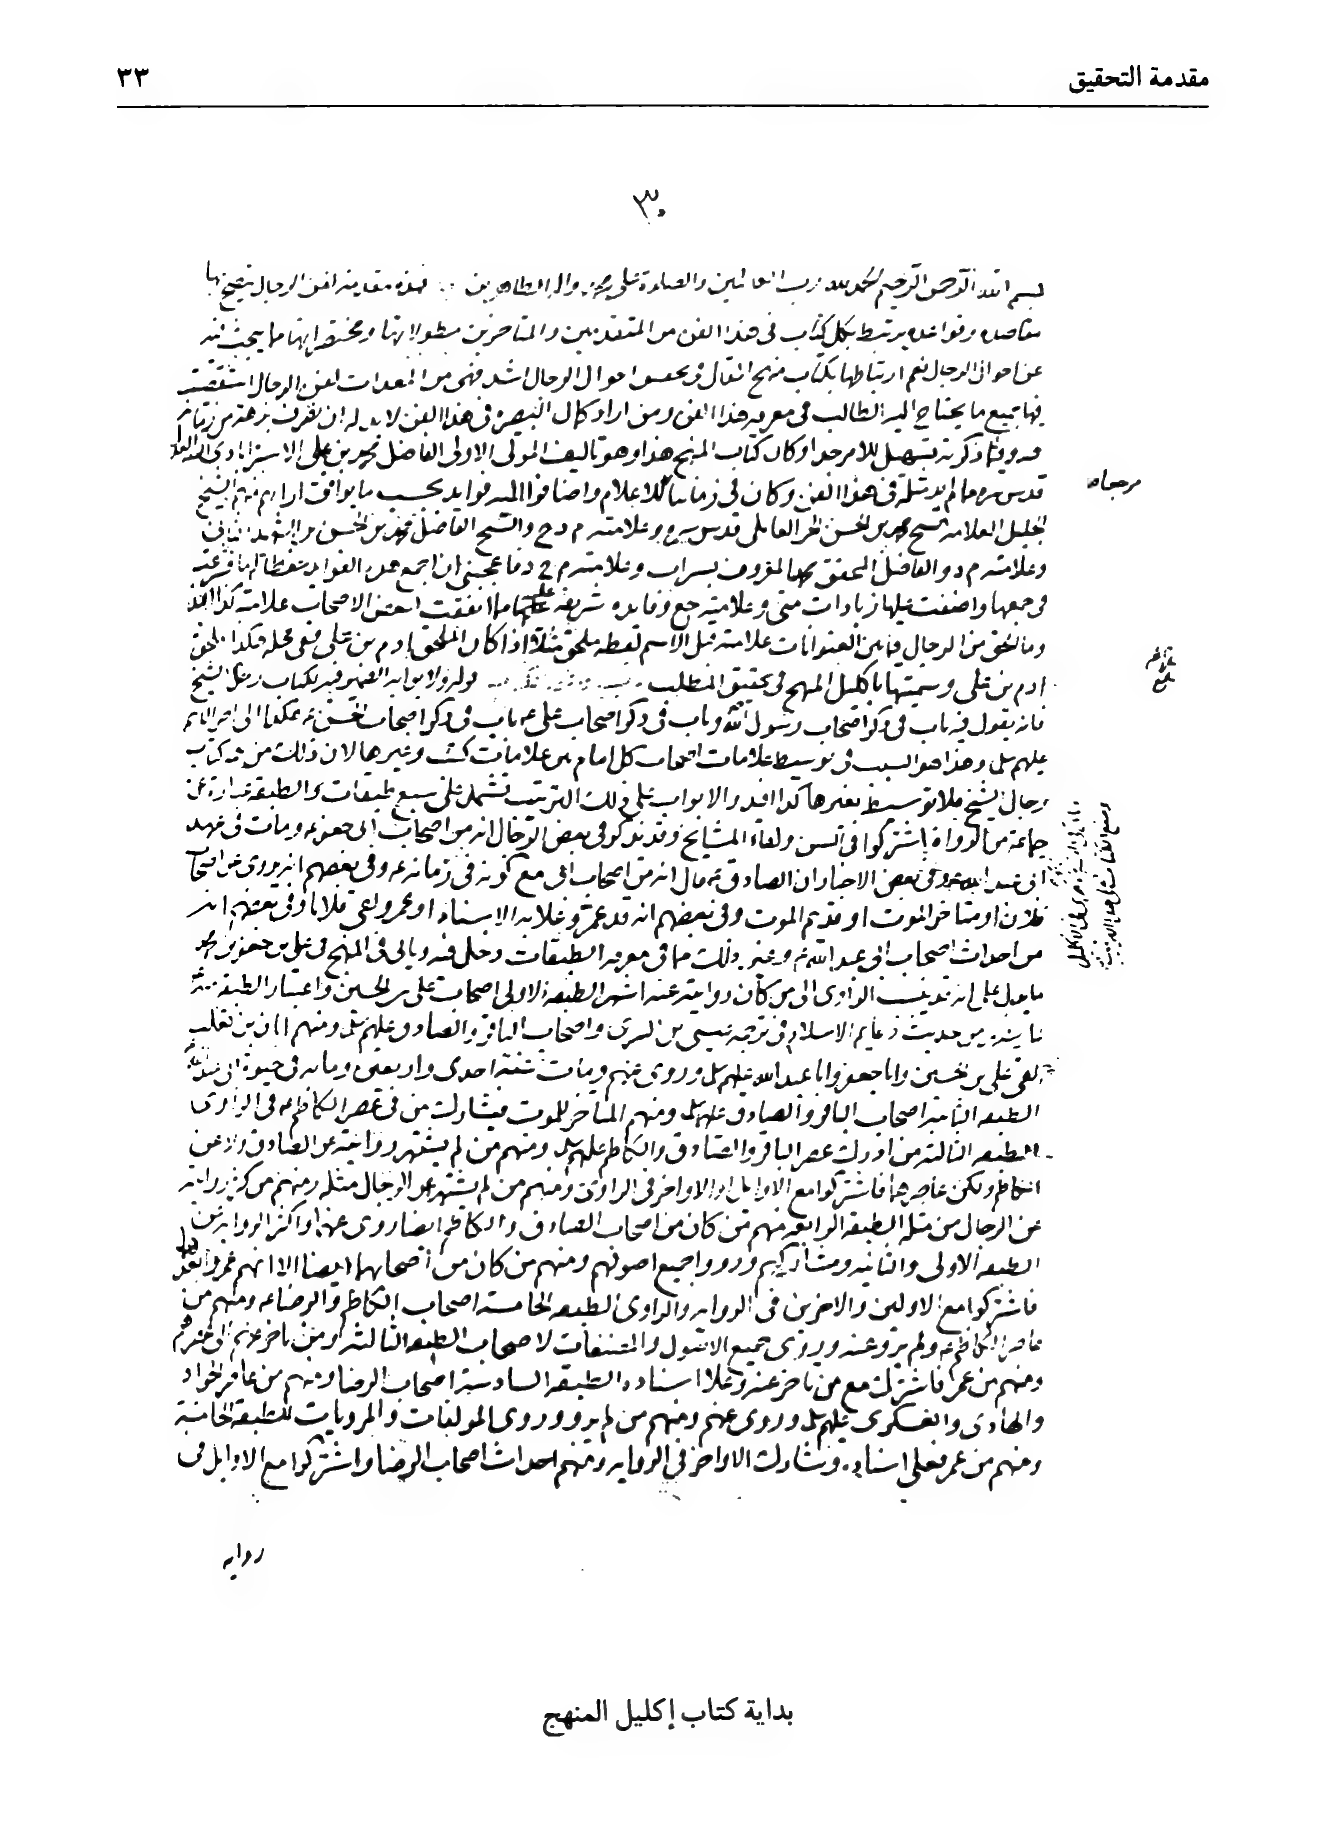 مقدمة التحقيق
٣٣
٣٠
بسم الله الرحمن الرحيم الحمد لله رب العالمين والصلوة على محمد واله الطاهرين فهذه مقدمة لفن الرجال يتضح بها
مقاصده وقواعده يرتبط بكل كتاب في هذا الفن من المتقدمين والمتاخرين مطولاتها ومختصراتها ما يبحث فيه
عن احوال الرجال نعم ارتباطها بكتاب منهج المقال في تحقيق احوال الرجال اشد فهي من المعدات لفن الرجال
فيها جميع ما يحتاج اليه الطالب في معرفة هذا الفن ومن اراد كمال التبصرة في هذا الفن لابد له ان يصرف برهة من زمانه
فيه وفيما ذكرته تسهيل للامر جدا وكان كتاب المنهج هذا وهو تاليف المولى الاولى الفاضل محمد بن علي الاسترابادي
قدس سره مما لم يوجد مثله في هذا الفن وكان في زماننا للاعلام واضافوا اليه فوايد بحسب ما يوافق اراءهم منهم الشيخ
الجليل العلامة الشيخ محمد بن الحسن الحر العاملي قدس سره وعلامته م د ح والشيخ الفاضل محمد بن الحسن بن الشهيد الثاني
وعلامته م د والفاضل المحقق محمد المعروف بسراب وعلامته م ح د فاعجبني ان اجمع هذه الفوايد
في جمعها واضفت عليها زيادات مني وعلامته جع وفايدة شريفة
وما الحق من الرجال فيما بين العنوانات علامته قبل الاسم لفظه ملحق مثلا اذا كان الملحق ادم بن علي ففي محله هكذا الحق
ادم بن علي وسميتها باكليل المنهج في تحقيق المطلب قوله والابواب
فانه يقول فيه باب في ذكر اصحاب رسول الله وباب في ذكر اصحاب علي ع باب في ذكر اصحاب الحسن ع هكذا الى اخر الائمة
عليهم السلام وهذا هو السبب في توسيط علامات اصحاب كل امام بين علامات كش وغيرها لان ذلك من تتمة كتاب
رجال الشيخ فلا توسيط بغيرها كذا افيد والابواب على ذلك الترتيب تشتمل على سبع طبقات والطبقة عبارة عن
جماعة من الرواة اشتركوا في السن ولقاء المشايخ وقد يذكر في بعض الرجال انه من اصحاب ابي جعفر ع ومات في عهد
ابي عبد الله ع وفي بعض الاخبار ان الصادق ع قال انه من اصحاب ابي مع كونه في زمانه ع وفي بعضهم انه يروي عن اصحاب
فلان او متاخر الموت او قديم الموت وفي بعضهم انه قد عمر وعلا به الاسناد او عمر ولقي فلانا وفي بعضهم انه
من احداث اصحاب ابي عبد الله ع وغير ذلك مما في معرفة الطبقات دخل فيه وياتي في المنهج في علي بن جعفر بن محمد
ما يدل على انه قد ينسب الراوي الى من كان روايته عنه اشهر الطبقة الاولى اصحاب علي بن الحسين واعتبار الطبقة
من حديث دعايم الاسلام في ترجمة عيسى بن السري واصحاب الباقر والصادق عليهم السلام ومنهم ابان بن تغلب
لقي علي بن الحسين وابا جعفر وابا عبد الله عليهم السلام وروى عنهم ومات سنة احدى واربعين ومائة في حيوة ابي عبد الله ع
الطبقة الثانية اصحاب الباقر والصادق عليهم السلام ومنهم المتاخر للموت فيشارك من في عصر الكاظم ع في الراوي
الطبقة الثالثة من ادرك عصر الباقر والصادق والكاظم عليهم السلام ومنهم من لم يشتهر روايته عن الصادق ولا عن
الكاظم ولكن عاصرهما فاشتركوا مع الاوايل او الاواخر في الراوي ومنهم من لم يشتهر عن الرجال مثله ومنهم من كثر روايته
عن الرجال من مثله الطبقة الرابعة منهم من كان من اصحاب الصادق والكاظم ايضا روى عنهما واكثر الرواية عن
الطبقة الاولى والثانية ومشاركيهم ورووا جميع اصولهم ومنهم من كان من اصحابهما ايضا الا انهم عمروا بعدهما
فاشتركوا مع الاولين والاخرين في الرواية والراوي الطبقة الخامسة اصحاب الكاظم والرضا ع ومنهم من
عاصر الكاظم ع ولم يرو عنه وروى جميع الاصول والمصنفات لاصحاب الطبقة الثالثة ومن تاخر عنهم الى عصرهم
ومنهم من عمر فاشترك مع من تاخر عنه وعلا اسناده الطبقة السادسة اصحاب الرضا ومنهم من عاصر الجواد
والهادي والعسكري عليهم السلام وروى عنهم ومنهم من لم يرو وروى المولفات والمرويات للطبقة الخامسة
ومنهم من عمر فعلى اسناده وشارك الاواخر في الرواية ومنهم احداث اصحاب الرضا واشتركوا مع الاوايل في
رواية
بداية كتاب إكليل المنهج